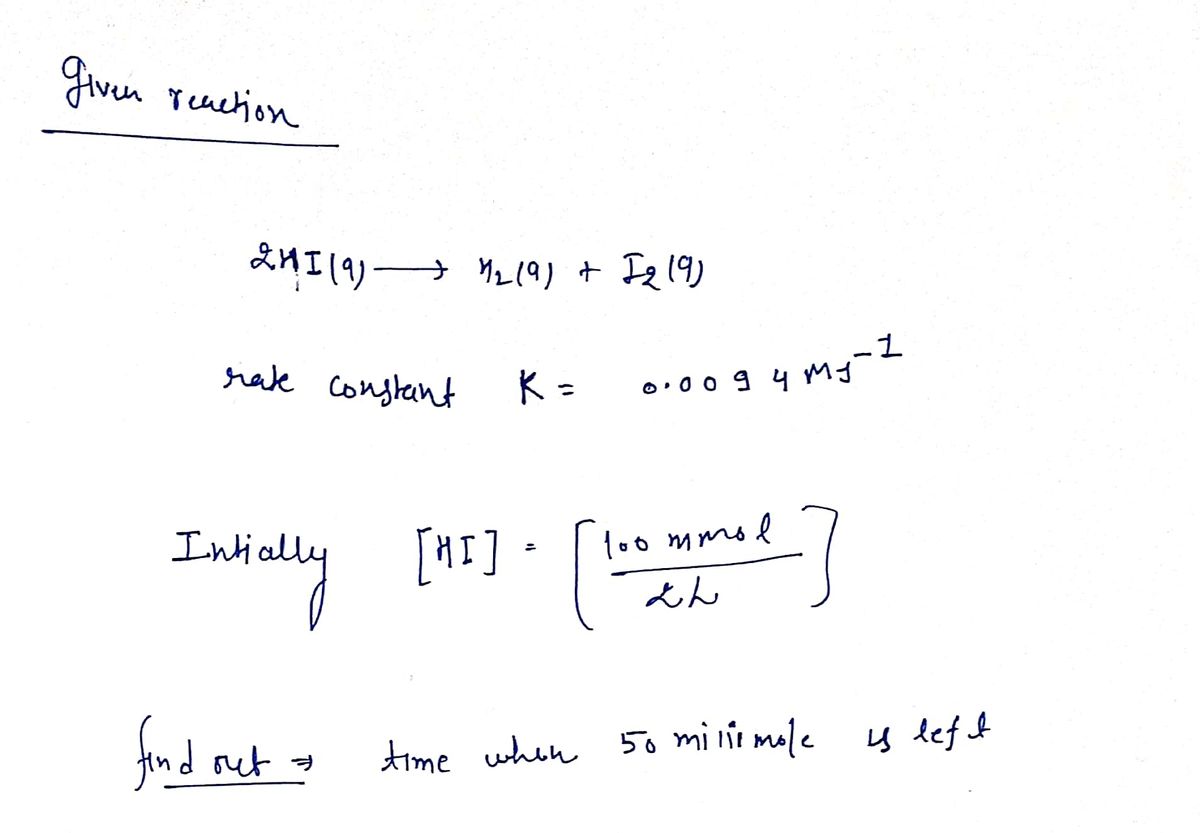 Given reaction
2HI(g) → H2(g) + I2(g)
rate constant K = 0.0094 Ms⁻¹
Intially [HI] = [100 mmol / 2L]
find out ⇒ time when 50 millimole is left